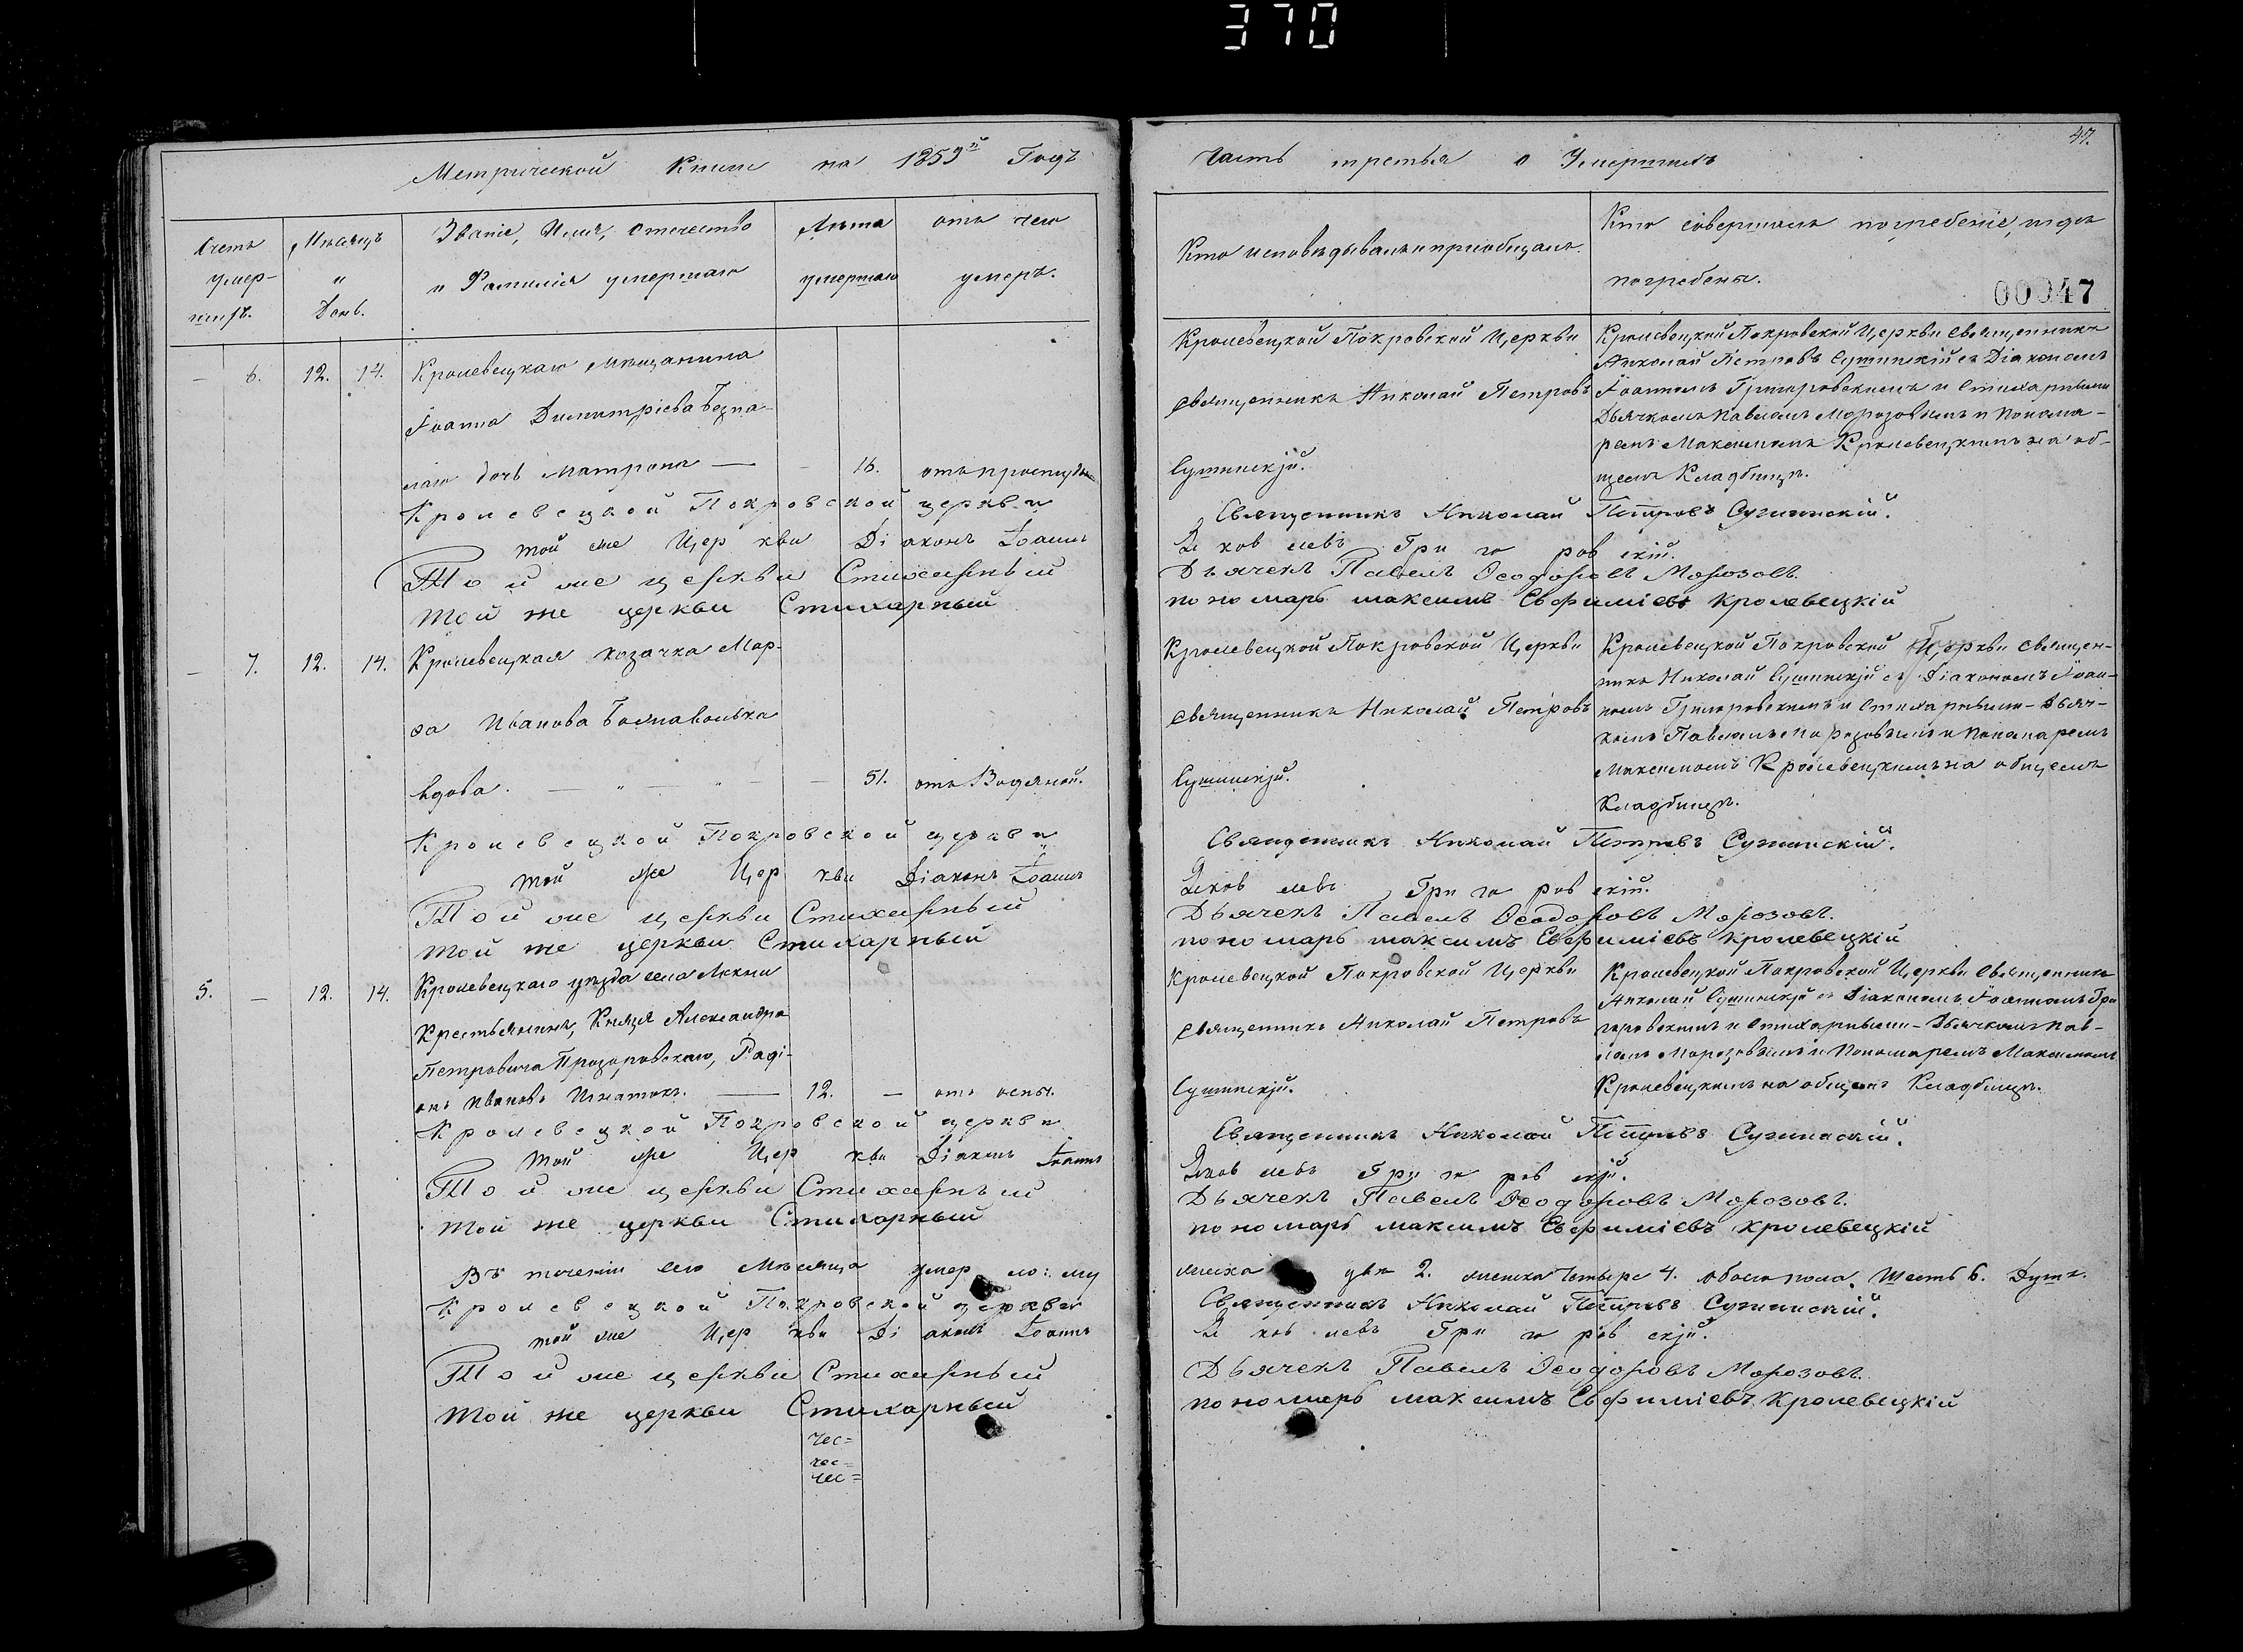 370
Метрической Книги на 1859й Годъ
Счетъ умер-шихъ.
Мѣсяцъ и День.
Званіе, Имя, Отчество и Фамилія умершаго
Лѣта умершаго
отъ чего умеръ.
— 6. 12. 14. Кролевецкаго мѣщанина
Іоанна Димитріева
дочь Матрона — — 16. отъ простуды
Кролевецкой Покровской церкви
той же Церкви Діаконъ Іоаннъ
Той же церкви Стихарный
Той же церкви Стихарный
— 7. 12. 14. Кролевецкая козачка Мар-
ѳа Иванова
вдова. — " — " — — 51. отъ Водяной.
Кролевецкой Покровской церкви
той же Церкви Діаконъ Іоаннъ
Той же церкви Стихарный
Той же церкви Стихарный
5. — 12. 14. Кролевецкаго уѣзда села
Крестьянинъ, Князя Александра
Петровича Прозоровскаго, Раді-
онъ Ивановъ Игнатокъ. — 12. — отъ оспы.
Кролевецкой Покровской церкви
той же Церкви Діаконъ Іоаннъ
Той же церкви Стихарный
Той же церкви Стихарный
Въ теченіи сего Мѣсяца умерло: му
Кролевецкой Покровской церкви
той же Церкви Діаконъ Іоаннъ
Той же церкви Стихарный
Той же церкви Стихарный
чес=
чес=
чес=
47.
Часть третья о Умершихъ
Кто исповѣдывалъ и пріобщалъ.
Кто совершалъ погребеніе, и гдѣ
погребены.
00047
Кролевецкой Покровской Церкви
священникъ Николай Петровъ
Сушинскій.
Кролевецкой Покровской Церкви священникъ
Николай Петровъ Сушинскій съ Діакономъ
Іоанномъ Григоровскимъ и Стихарными
Дьячкомъ Павломъ Морозовымъ и Понома-
ремъ Максимомъ Кролевецкимъ на об-
щемъ Кладбищѣ.
Священникъ Николай Петровъ Сушинскій.
Яковлевъ Григоровскій.
Дьячекъ Павелъ Ѳеодоровъ Морозовъ.
пономарь максимъ Евфиміевъ кролевецкій
Кролевецкой Покровской Церкви
священникъ Николай Петровъ
Сушинскій.
Кролевецкой Покровской Церкви священ-
никъ Николай Сушинскій съ Діакономъ Іоан-
номъ Григоровскимъ и Стихарными — Дьяч-
комъ Павломъ Морозовымъ и Пономаремъ
Максимомъ Кролевецкимъ на общемъ
Кладбищѣ.
Священникъ Николай Петровъ Сушинскій.
Яковлевъ Григоровскій.
Дьячекъ Павелъ Ѳеодоровъ Морозовъ.
пономарь максимъ Евфиміевъ кролевецкій
Кролевецкой Покровской Церкви
священникъ Николай Петровъ
Сушинскій.
Кролевецкой Покровской Церкви священникъ
Николай Сушинскій съ Діакономъ Іоанномъ Гри
горовскимъ и Стихарными — Дьячкомъ Пав-
ломъ Морозовымъ и Пономаремъ Максимомъ
Кролевецкимъ на общемъ Кладбищѣ.
Священникъ Николай Петровъ Сушинскій.
Яковлевъ Григоровскій.
Дьячекъ Павелъ Ѳеодоровъ Морозовъ.
пономарь максимъ Евфиміевъ кролевецкій
жеска два 2. женска Четыре 4. обоего пола. Шесть 6. Душъ.
Священникъ Николай Петровъ Сушинскій.
Яковлевъ Григоровскій.
Дьячекъ Павелъ Ѳеодоровъ Морозовъ.
пономарь максимъ Евфиміевъ Кролевецкій